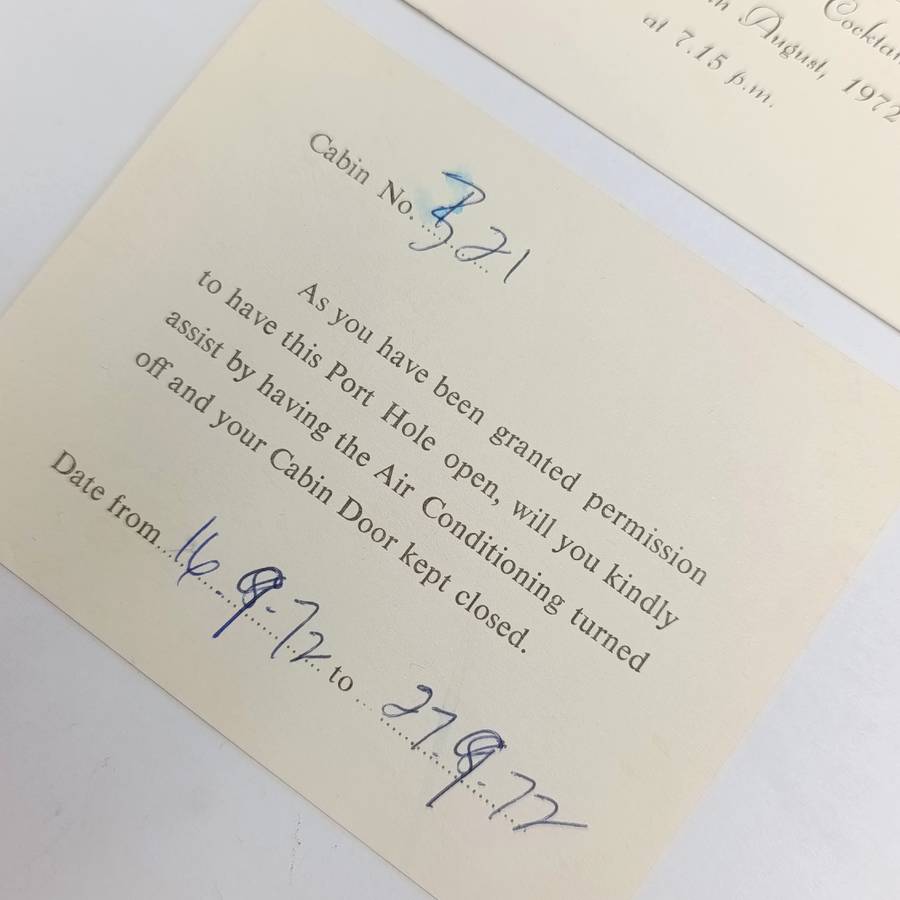 August, 1972
at 7.15 p.m.
Cabin No. B21
As you have been granted permission
to have this Port Hole open, will you kindly
assist by having the Air Conditioning turned
off and your Cabin Door kept closed.
Date from 16.9.72 to 27.9.72